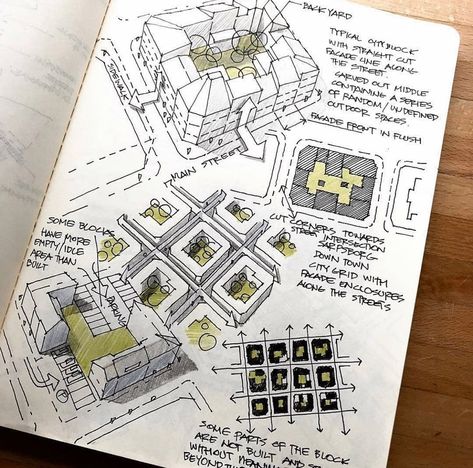 BACKYARD
TYPICAL CITY BLOCK
WITH STRAIGHT CUT
FACADE LINE ALONG
THE STREET.
CARVED OUT MIDDLE
CONTAINING A SERIES
OF RANDOM/UNDEFINED
OUTDOOR SPACES.
FACADE FRONT IN FLUSH
SIDEWALK
MAIN STREET
CUT CORNERS TOWARDS
STREET INTERSECTION
SARPSBORG
DOWN TOWN
CITY GRID WITH
FACADE ENCLOSURES
ALONG THE STREETS
SOME BLOCKS
HAVE MORE
EMPTY/IDLE
AREA THAN
BUILT
PARKING
SOME PARTS OF THE BLOCK
ARE NOT BUILT AND
WITHOUT
BEYOND